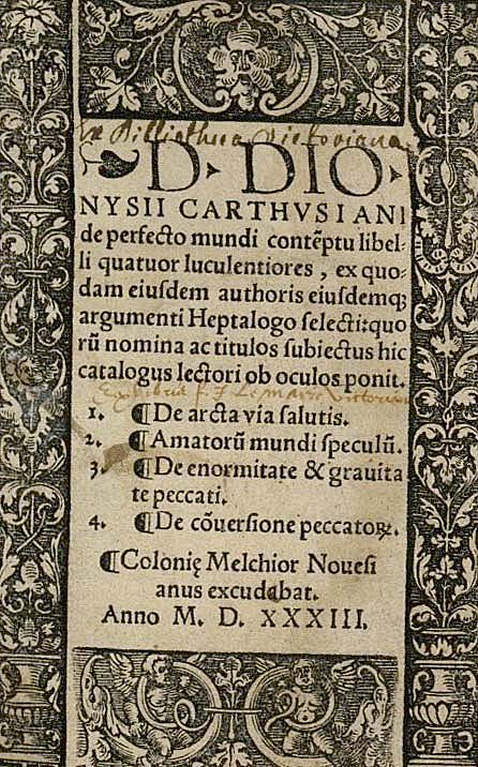 Ex Bibliotheca Victoriana.
❧D· DIO·
NYSII CARTHVSIANI
de perfecto mundi contẽptu libel⸗
li quatuor luculentiores, ex quo⸗
dam eiuſdem authoris eiuſdemq́;
argumenti Heptalogo ſelecti: quo
rũ nomina ac titulos ſubiectus hic
catalogus lectori ob oculos ponit.
1. ¶De arcta via ſalutis.
2. ¶Amatorũ mundi ſpeculũ.
3. ¶De enormitate & grauita
te peccati.
4. ¶De cõuerſione peccatoꝝ.
¶Colonię Melchior Noueſi
anus excudebat.
Anno M. D. XXXIII.